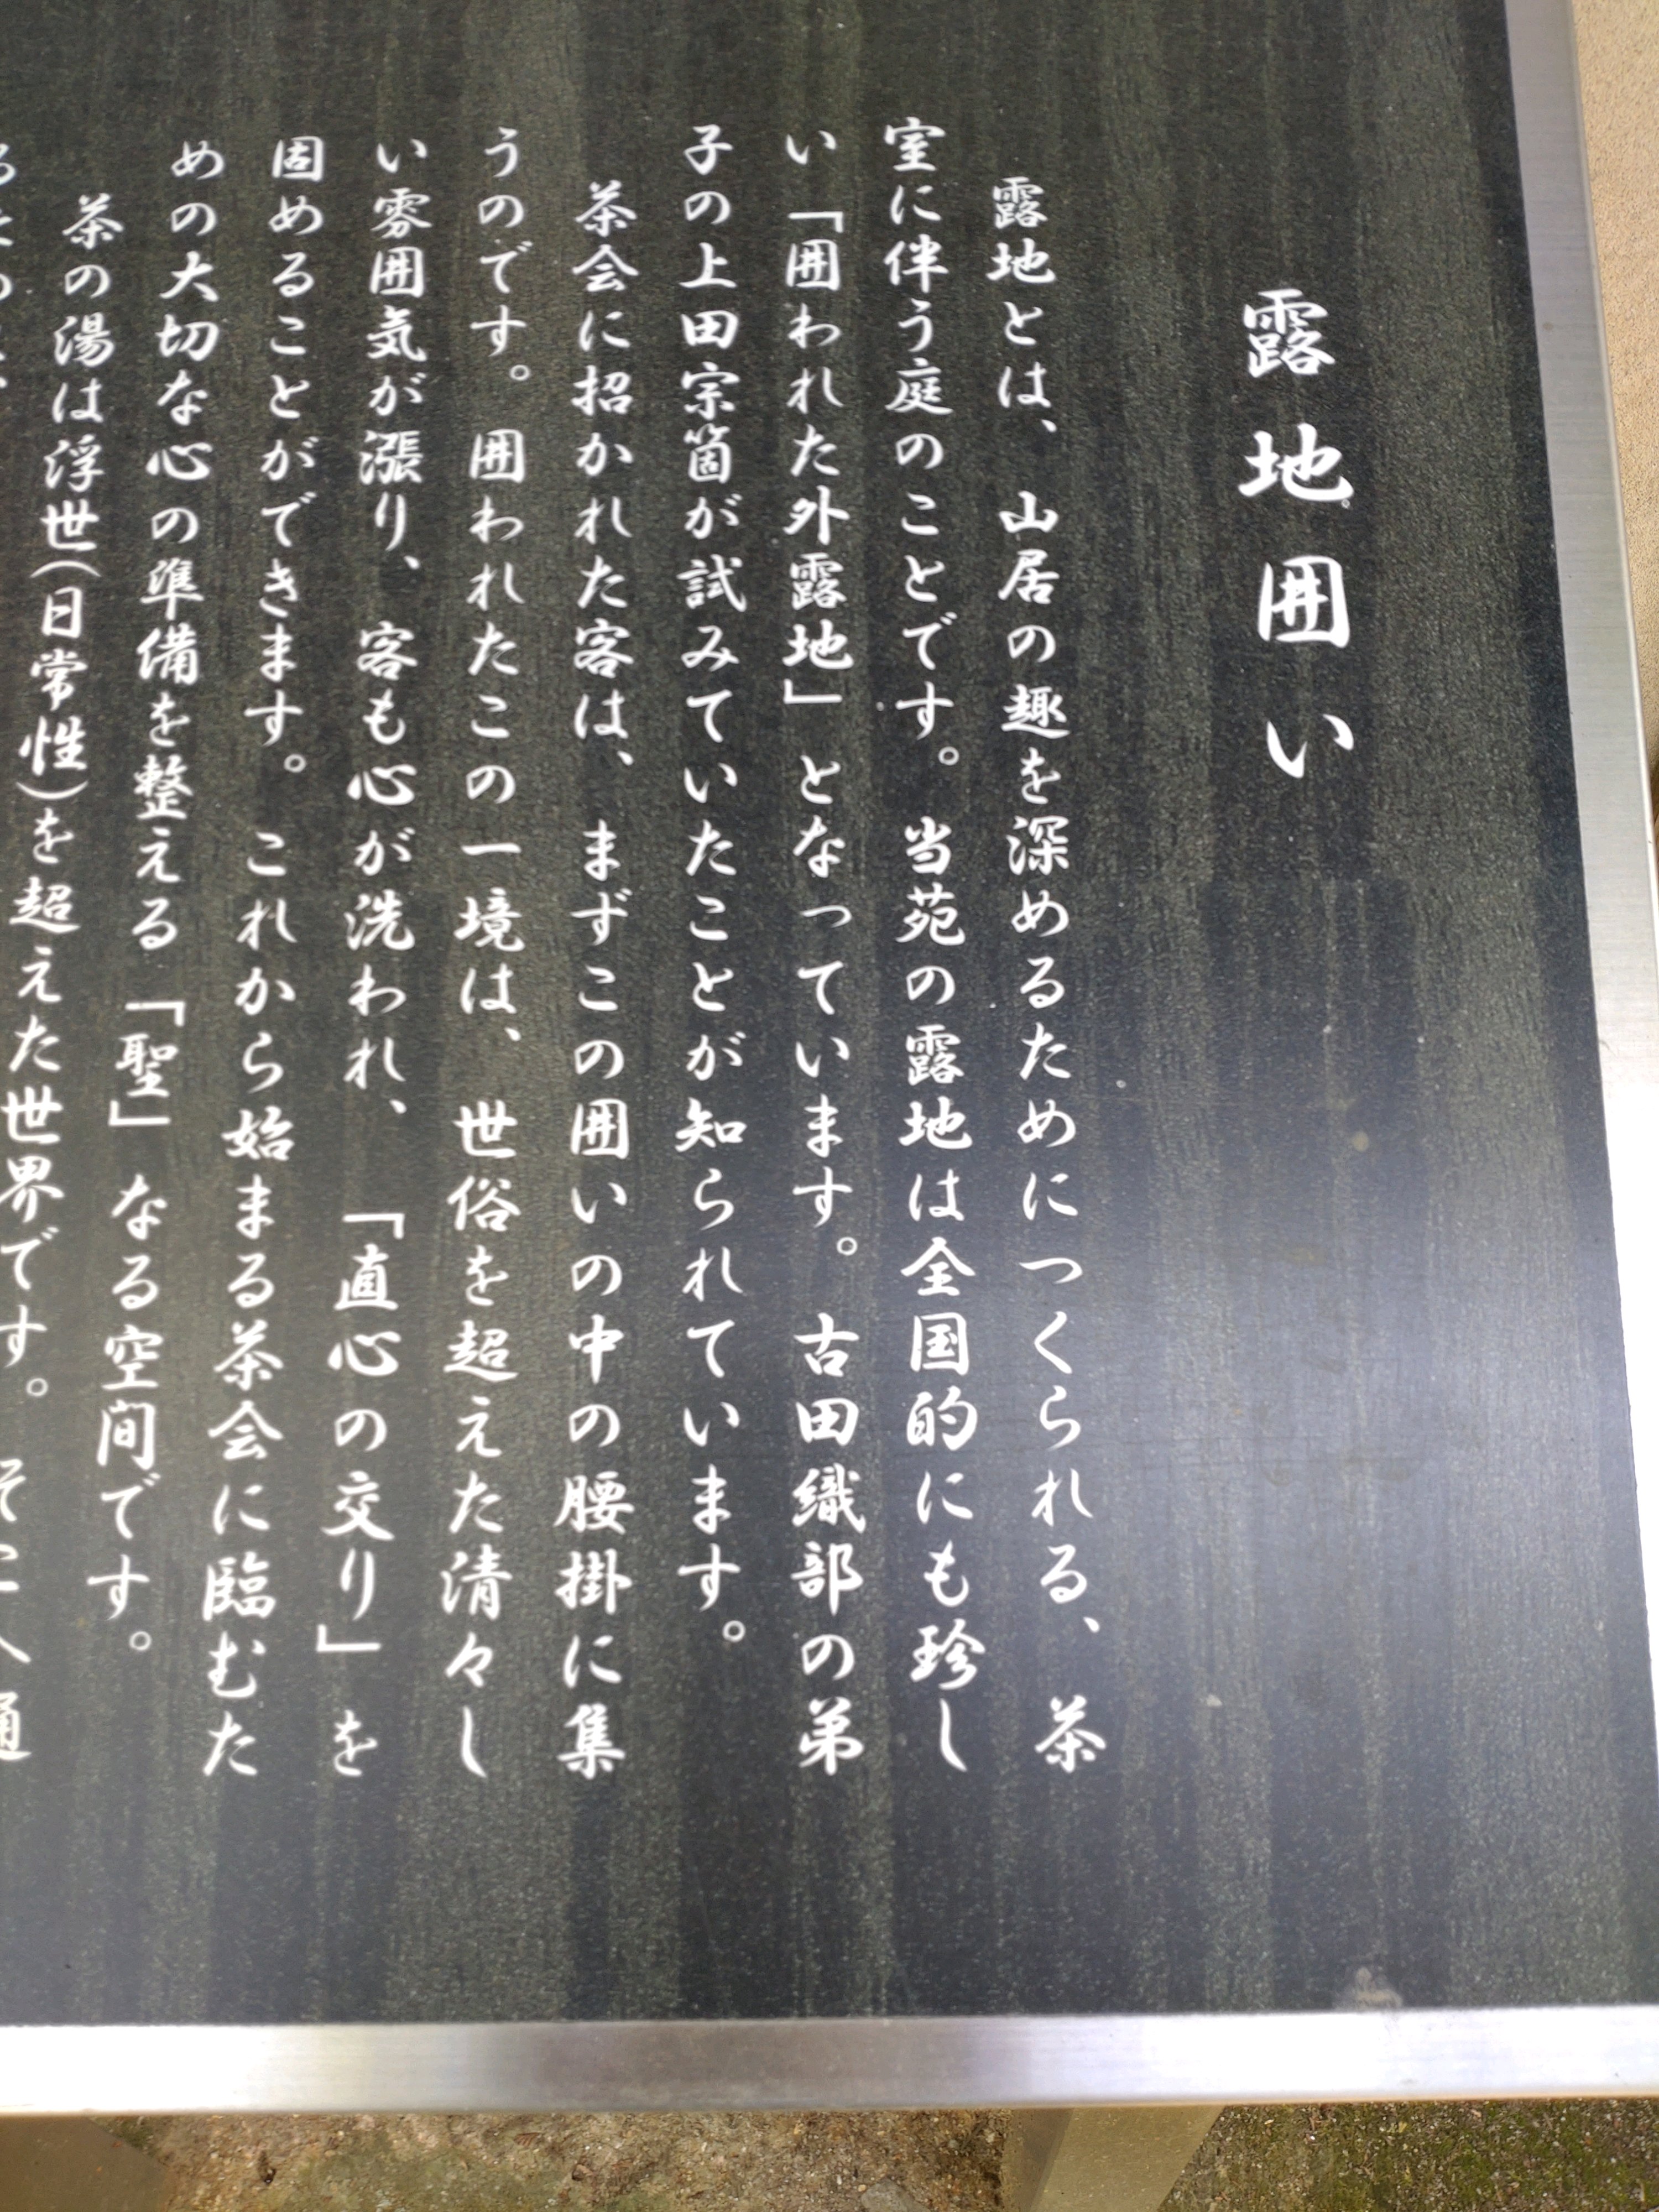 露地囲い
露地とは、山居の趣を深めるためにつくられる、茶
室に伴う庭のことです。当苑の露地は全国的にも珍し
い「囲われた外露地」となっています。古田織部の弟
子の上田宗箇が試みていたことが知られています。
茶会に招かれた客は、まずこの囲いの中の腰掛に集
うのです。囲われたこの一境は、世俗を超えた清々し
い雰囲気が漲り、客も心が洗われ、「直心の交り」を
固めることができます。これから始まる茶会に臨むた
めの大切な心の準備を整える「聖」なる空間です。
茶の湯は浮世(日常性)を超えた世界です。そこへ通